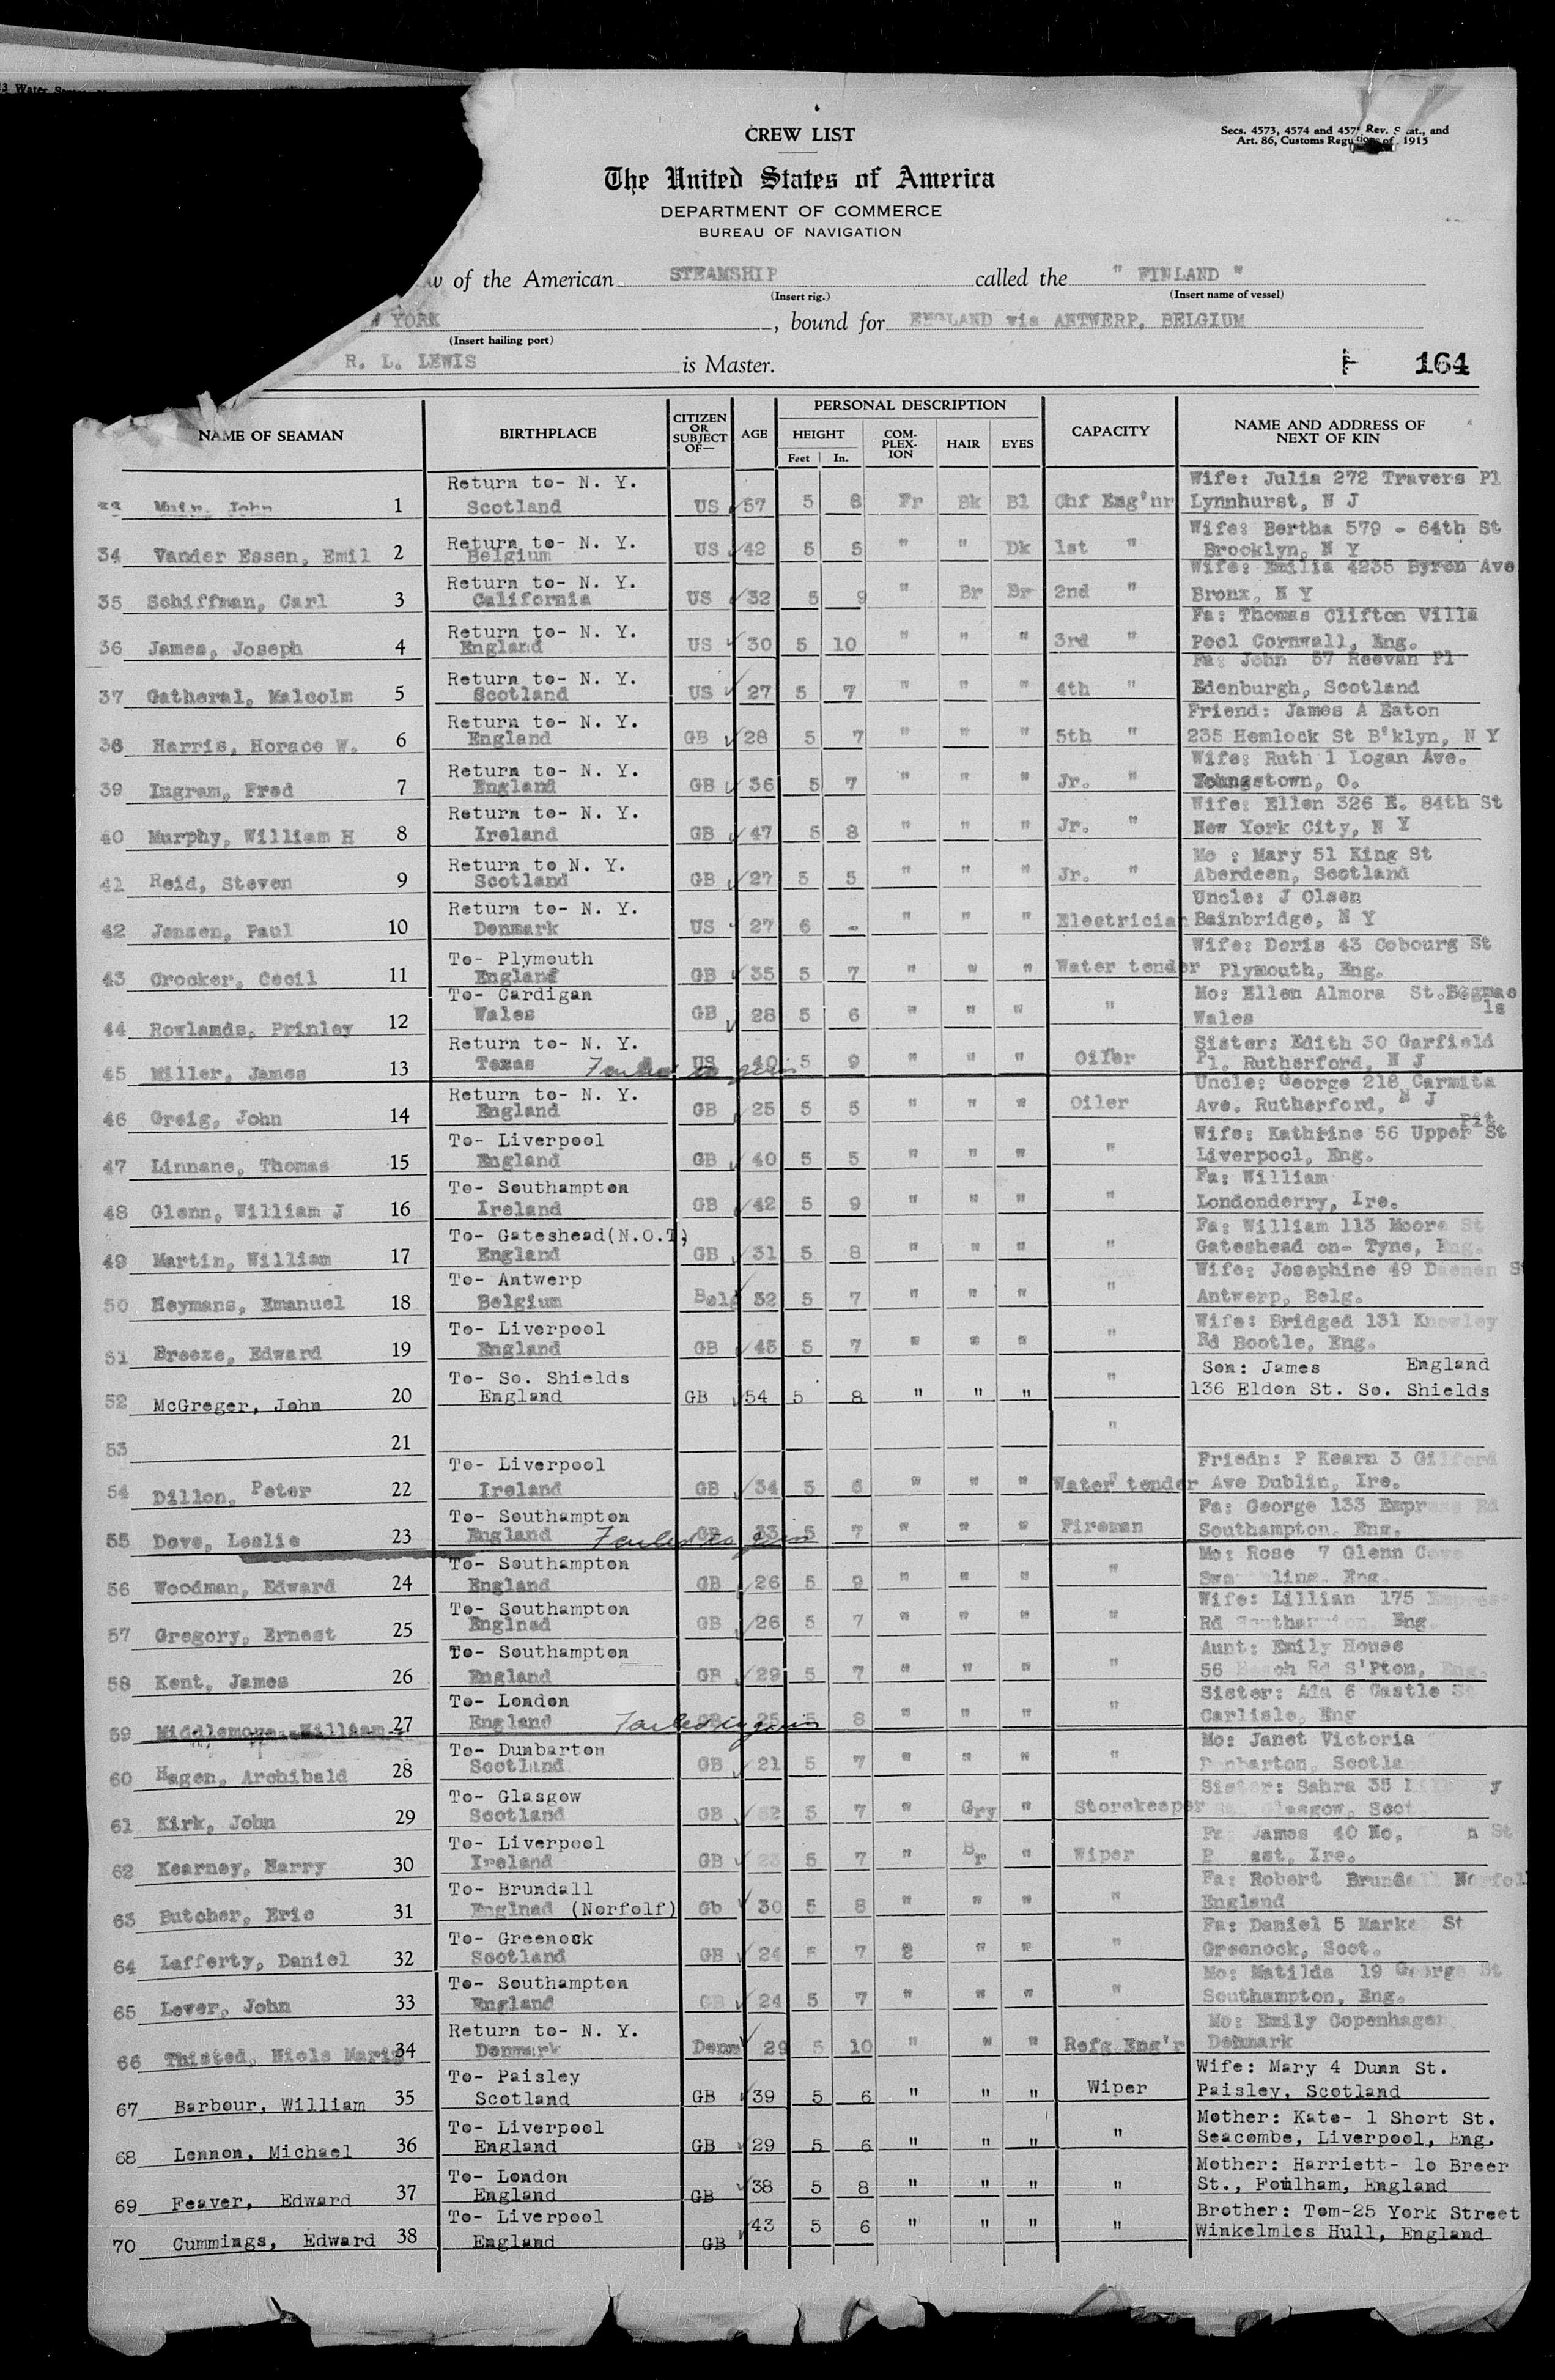 3 Water
CREW LIST
Secs. 4573, 4574 and 457 Rev. Stat., and
Art. 86, Customs Regu of 1915
The United States of America
DEPARTMENT OF COMMERCE
BUREAU OF NAVIGATION
w of the American STEAMSHIP called the " FINLAND "
(Insert rig.) (Insert name of vessel)
W YORK , bound for ENGLAND via ANTWERP, BELGIUM
(Insert hailing port)
R. L. LEWIS is Master.
164
NAME OF SEAMAN BIRTHPLACE CITIZEN OR SUBJECT OF— AGE PERSONAL DESCRIPTION CAPACITY NAME AND ADDRESS OF NEXT OF KIN
HEIGHT COM-PLEX-ION HAIR EYES
Feet In.
Return to- N. Y. Wife: Julia 272 Travers Pl
33 Muir, John 1 Scotland US 57 5 8 Fr Bk Bl Chf Eng'nr Lynnhurst, N J
Return to- N. Y. Wife: Bertha 579 - 64th St
34 Vander Essen, Emil 2 Belgium US 42 5 5 " " Dk 1st " Brooklyn, N Y
Return to- N. Y. Wife: Emilia 4235 Byron Ave
35 Schiffman, Carl 3 California US 32 5 9 " Br Br 2nd " Bronx, N Y
Return to- N. Y. Fa: Thomas Clifton Villa
36 James, Joseph 4 England US 30 5 10 " " " 3rd " Pool Cornwall, Eng.
Return to- N. Y. Fa: John 57 Reevan Pl
37 Gatheral, Malcolm 5 Scotland US 27 5 7 " " " 4th " Edenburgh, Scotland
Return to- N. Y. Friend: James A Eaton
38 Harris, Horace W. 6 England GB 28 5 7 " " " 5th " 235 Hemlock St B'klyn, N Y
Return to- N. Y. Wife: Ruth 1 Logan Ave.
39 Ingram, Fred 7 England GB 36 5 7 " " " Jr. " Youngstown, O.
Return to- N. Y. Wife: Ellen 326 E. 84th St
40 Murphy, William H 8 Ireland GB 47 5 8 " " " Jr. " New York City, N Y
Return to N. Y. Mo : Mary 51 King St
41 Reid, Steven 9 Scotland GB 27 5 5 " " " Jr. " Aberdeen, Scotland
Return to- N. Y. Uncle: J Olsen
42 Jensen, Paul 10 Denmark US 27 6 - " " " Electrician Bainbridge, N Y
To- Plymouth Wife: Doris 43 Cobourg St
43 Crocker, Cecil 11 England GB 35 5 7 " " " Water tender Plymouth, Eng.
To- Cardigan Mo: Ellen Almora St.
44 Rowlands, Prinley 12 Wales GB 28 5 6 " " " " Wales
Return to- N. Y. Sister: Edith 30 Garfield
45 Miller, James 13 Texas Failed to join US 40 5 9 " " " Oiler Pl. Rutherford, N J
Return to- N. Y. Uncle: George 218 Carmita
46 Greig, John 14 England GB 25 5 5 " " " Oiler Ave. Rutherford, N J
To- Liverpool Wife: Kathrine 56 Upper Pit St
47 Linnane, Thomas 15 England GB 40 5 5 " " " " Liverpool, Eng.
To- Southampton Fa: William
48 Glenn, William J 16 Ireland GB 42 5 9 " " " " Londonderry, Ire.
To- Gateshead(N.O.T) Fa: William 113 Moore St
49 Martin, William 17 England GB 31 5 8 " " " " Gateshead on- Tyne, Eng.
To- Antwerp Wife: Josephine 49 Daenen St
50 Heymans, Emanuel 18 Belgium Belg 32 5 7 " " " " Antwerp, Belg.
To- Liverpool Wife: Bridged 131 Knowley
51 Breeze, Edward 19 England GB 45 5 7 " " " " Rd Bootle, Eng.
To- So. Shields Son: James England
52 McGreger, John 20 England GB 54 5 8 " " " " 136 Eldon St. So. Shields
53 21 "
To- Liverpool Friedn: P Kearn 3 Gilford
54 Dillon, Peter 22 Ireland GB 34 5 6 " " " Water tender Ave Dublin, Ire.
To- Southampton Fa: George 133 Empress Rd
55 Dove, Leslie 23 England Failed to join GB 33 5 7 " " " Fireman Southampton, Eng.
To- Southampton Mo: Rose 7 Glenn Cove
56 Woodman, Edward 24 England GB 26 5 9 " " " " Eng.
To- Southampton Wife: Lillian 175 Empress
57 Gregory, Ernest 25 Englnad GB 26 5 7 " " " " Rd Southampton, Eng.
To- Southampton Aunt: Emily House
58 Kent, James 26 England GB 29 5 7 " " " " 56 Beach Rd S'Pton, Eng.
To- London Sister: Ada 6 Castle St
59 William 27 England Failed to join GB 25 5 8 " " " " Carlisle, Eng
To- Dunbarton Mo: Janet Victoria
60 Hagen, Archibald 28 Scotland GB 21 5 7 " " " " Dunbarton, Scotla
To- Glasgow Sister: Sahra 35
61 Kirk, John 29 Scotland GB 52 5 7 " Gry " Storekeeper Glasgow, Scot.
To- Liverpool Fa: James 40 No, St
62 Kearney, Harry 30 Ireland GB 23 5 7 " Br " Wiper Ire.
To- Brundall Fa: Robert Brundall Norfolk
63 Butcher, Eric 31 Englnad (Norfolf) Gb 30 5 8 " " " " England
To- Greenock Fa: Daniel 5 Market St
64 Lafferty, Daniel 32 Scotland GB 24 5 7 " " " Greenock, Scot.
To- Southampton Mo: Matilda 19 George St
65 Lever, John 33 England GB 24 5 7 " " " " Southampton, Eng.
Return to- N. Y. Mo: Emily Copenhagen
66 Thisted, Niels Maris 34 Denmark Denm 29 5 10 " " " Refg Eng'r Denmark
To- Paisley Wife: Mary 4 Dunn St.
67 Barbour, William 35 Scotland GB 39 5 6 " " " Wiper Paisley, Scotland
To- Liverpool Mother: Kate- 1 Short St.
68 Lennon, Michael 36 England GB 29 5 6 " " " " Seacombe, Liverpool, Eng.
To- London Mother: Harriett- 1o Breer
69 Feaver, Edward 37 England GB 38 5 8 " " " " St., Foulham, England
To- Liverpool Brother: Tom-25 York Street
70 Cummings, Edward 38 England GB 43 5 6 " " " " Winkelmles Hull, England